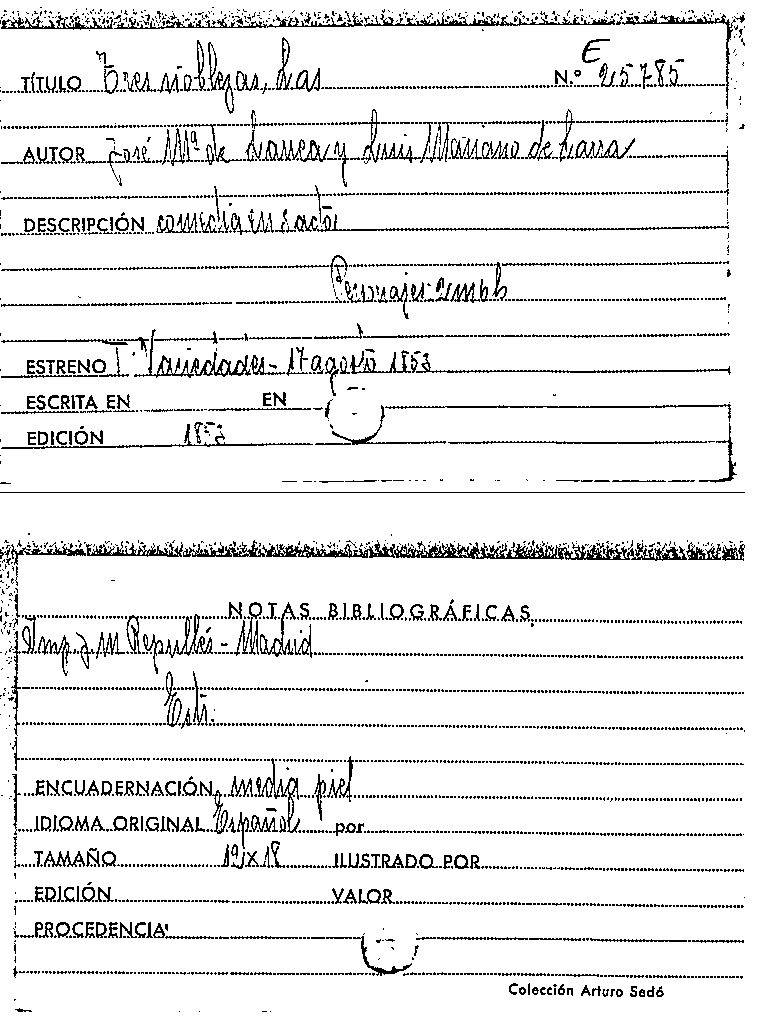 TÍTULO Tres noblezas, Las N.º E 25785
AUTOR José Mª de Larrea y Luis Mariano de Larra
DESCRIPCIÓN comedia en 3 actos
Personajes
ESTRENO T. Variedades - 17 agosto 1853
ESCRITA EN EN
EDICIÓN 1853
NOTAS BIBLIOGRÁFICAS
Imp. J. M Repullés - Madrid
ENCUADERNACIÓN media piel
IDIOMA ORIGINAL Español por
TAMAÑO 12 x 18 ILUSTRADO POR
EDICIÓN VALOR
PROCEDENCIA
Colección Arturo Sedó